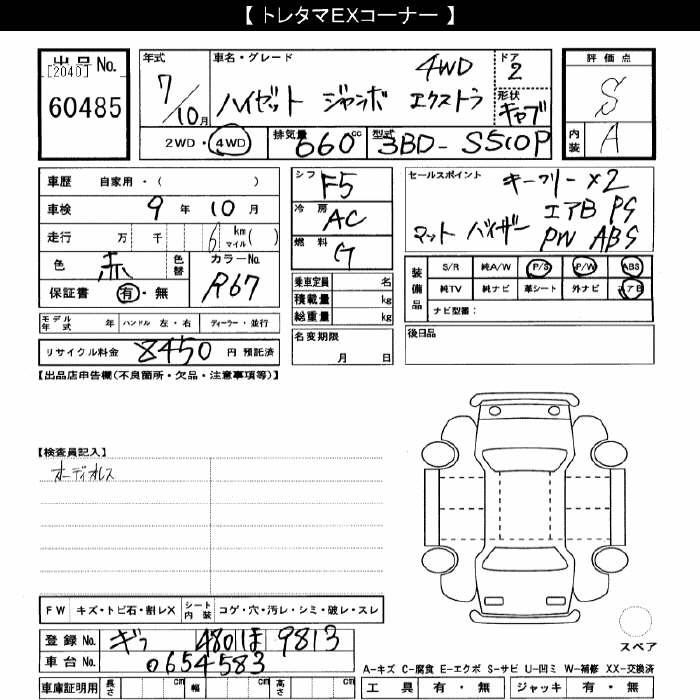 【 トレタマEXコーナー 】
出品 No.
[2040]
60485
年式
7/10月
車名・グレード
4WD
ハイゼット ジャンボ エクストラ
ドア
2
形状
キャブ
評価点
S
内装
A
2WD・4WD
排気量
660cc
型式
3BD-S510P
車歴 自家用・( )
車検 9年 10月
走行 万 千 6 km マイル( )
色 赤 色替
カラーNo.
R67
保証書 有・無
シフト F5
冷房 AC
燃料 G
乗車定員 名
積載量 kg
総重量 kg
名変期限
月 日
セールスポイント
キーフリー×2
エアB PS
マット バイザー PW ABS
装備品
S/R 純A/W P/S P/W ABS
純TV 純ナビ 革シート 外ナビ エアB
ナビ型番:
後日品
モデル年式 年 ハンドル 左・右 ディーラー・並行
リサイクル料金 8450 円 預託済
【出品店申告欄(不良箇所・欠品・注意事項等)】
【検査員記入】
オーディオレス
FW キズ・トビ石・割レX
シート内装 コゲ・穴・汚レ・シミ・破レ・スレ
登録 No. ギフ 480 1ほ 9813
車台 No. 0654583
車庫証明用 長さ cm 幅 cm 高さ cm
スペア
A-キズ C-腐食 E-エクボ S-サビ U-凹ミ W-補修 XX-交換済
工具 有・無 ジャッキ 有・無